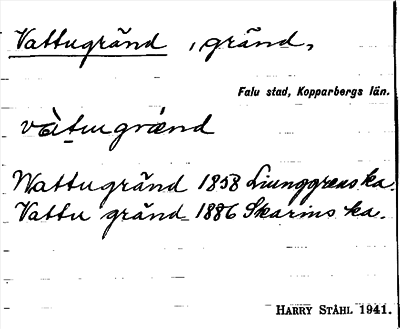 Vattugränd , gränd,
Falu stad, Kopparbergs län.
vàtu̱grænd
Wattugränd 1858 Liunggrens ka.
Vattu gränd 1886 Skarins ka.
HARRY STÅHL 1941.